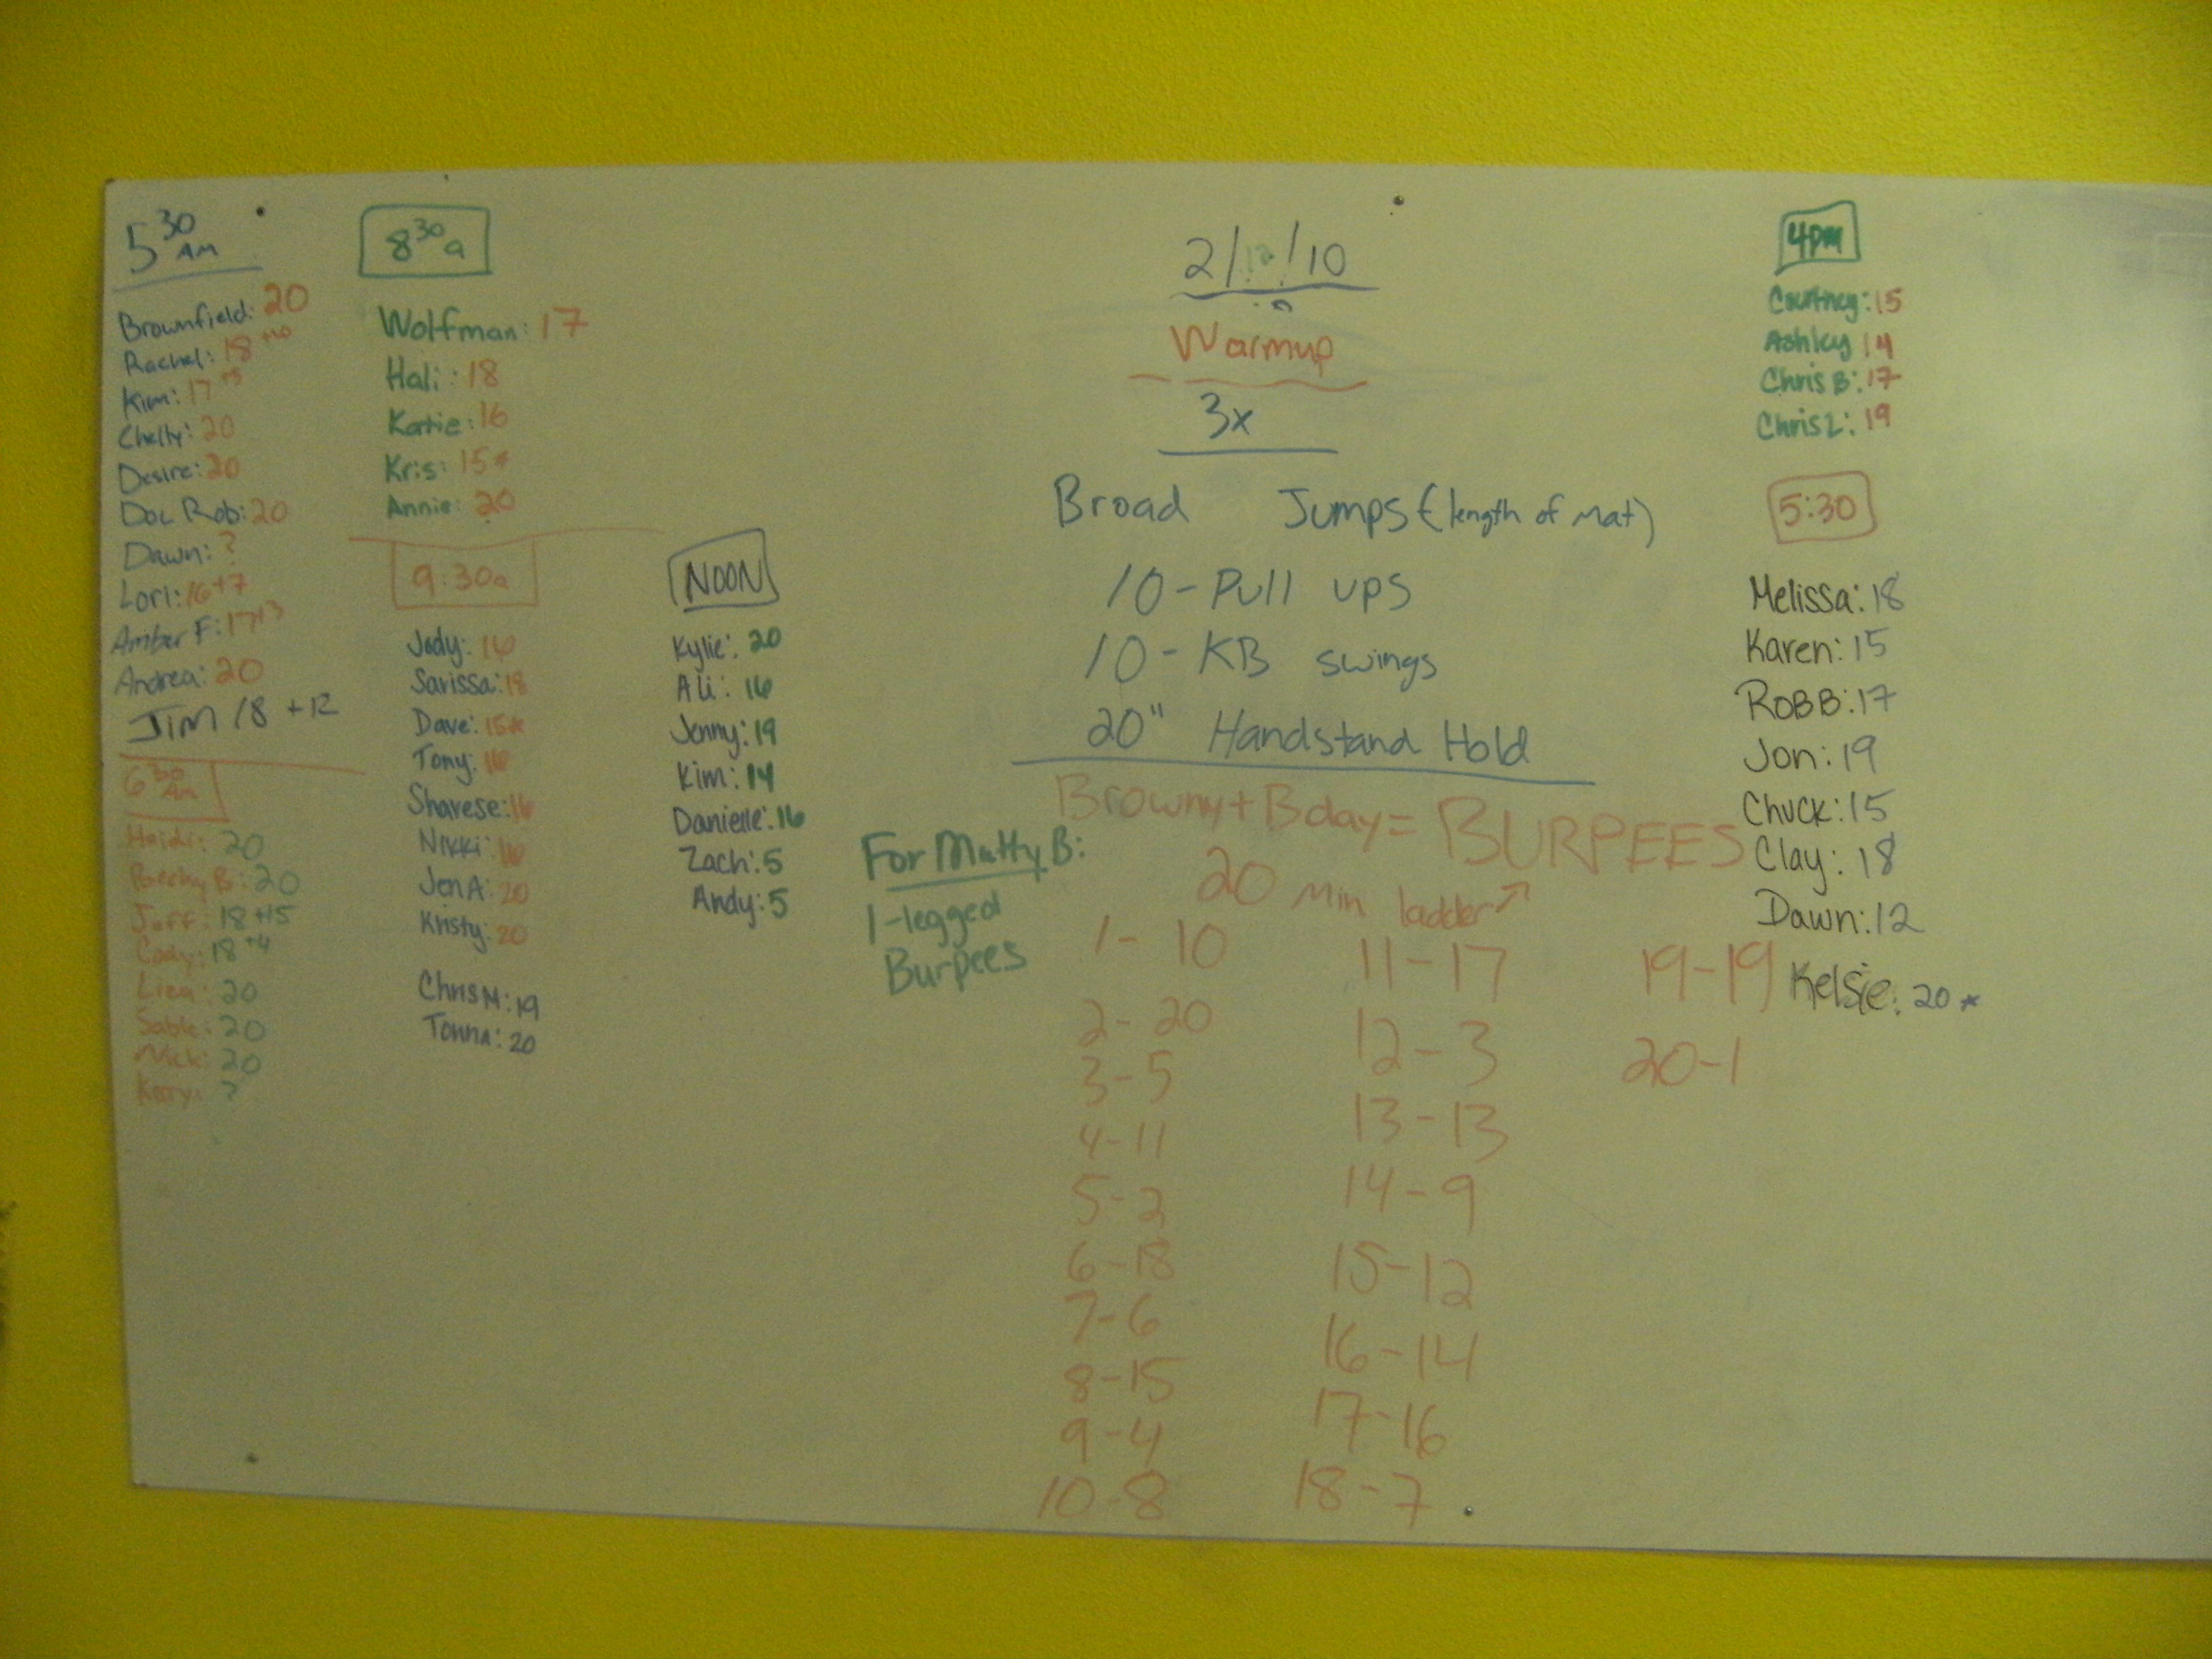 5 30 AM
Brownfield: 20
Rachel: 18 +10
Kim: 17 +5
Chelty: 20
Desire: 20
Doc Rob: 20
Dawn: ?
Lori: 16+7
Amber F: 17+3
Andrea: 20
JIM 18 +12
6 30 AM
Heidi: 20
Becky B: 20
Jeff: 18 +15
Cody: 18 +4
Liza: 20
Sable: 20
Nick: 20
Kerry: ?
8 30 a
Wolfman: 17
Hali: 18
Katie: 16
Kris: 15*
Annie: 20
9:30a
Jody: 16
Sarissa: 18
Dave: 15*
Tony: 16
Sharese: 16
Nikki: 16
Jen A: 20
Kristy: 20
Chris M: 19
Tonna: 20
NOON
Kylie: 20
Ali: 16
Jenny: 19
Kim: 14
Danielle: 16
Zach: 5
Andy: 5
For Matty B:
1-legged
Burpees
2/12/10
Warmup
3x
Broad Jumps (length of mat)
10-Pull ups
10-KB swings
20" Handstand Hold
Browny+Bday= BURPEES
20 Min ladder
1-10
2-20
3-5
4-11
5-2
6-18
7-6
8-15
9-4
10-8
11-17
12-3
13-13
14-9
15-12
16-14
17-16
18-7
19-19
20-1
4pm
Courtney: 15
Ashley 14
Chris B: 17
Chris L: 19
5:30
Melissa: 18
Karen: 15
ROBB: 17
Jon: 19
Chuck: 15
Clay: 18
Dawn: 12
Kelsie: 20 *